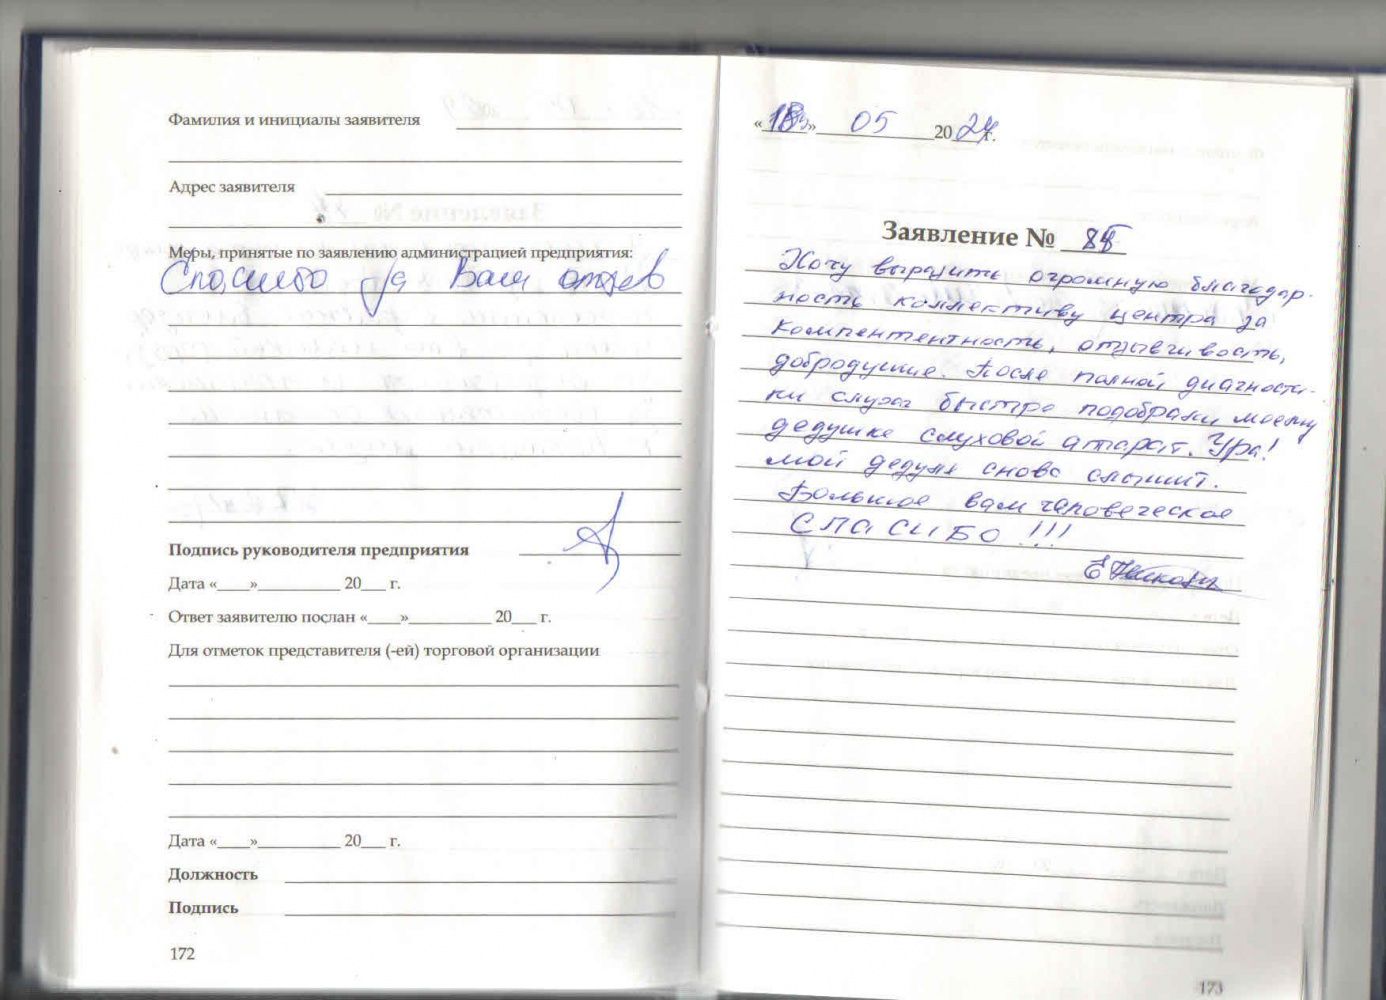 Фамилия и инициалы заявителя
Адрес заявителя
Меры, принятые по заявлению администрацией предприятия:
Спасибо за Ваш отзыв
Подпись руководителя предприятия
Дата «___»__________ 20___ г.
Ответ заявителю послан «___»__________ 20___ г.
Для отметок представителя (-ей) торговой организации
Дата «___»__________ 20___ г.
Должность
Подпись
172
«18» 05 2024 г.
Заявление №
Хочу выразить огромную благодар-
ность коллективу центра за
компентентность, отзывчивость,
добродушие. После полной диагности-
ки слуха быстро подобрали моему
дедушке слуховой аппарат. Ура!
мой дедуля снова слышит.
Большое вам человеческое
СПАСИБО!!!
173